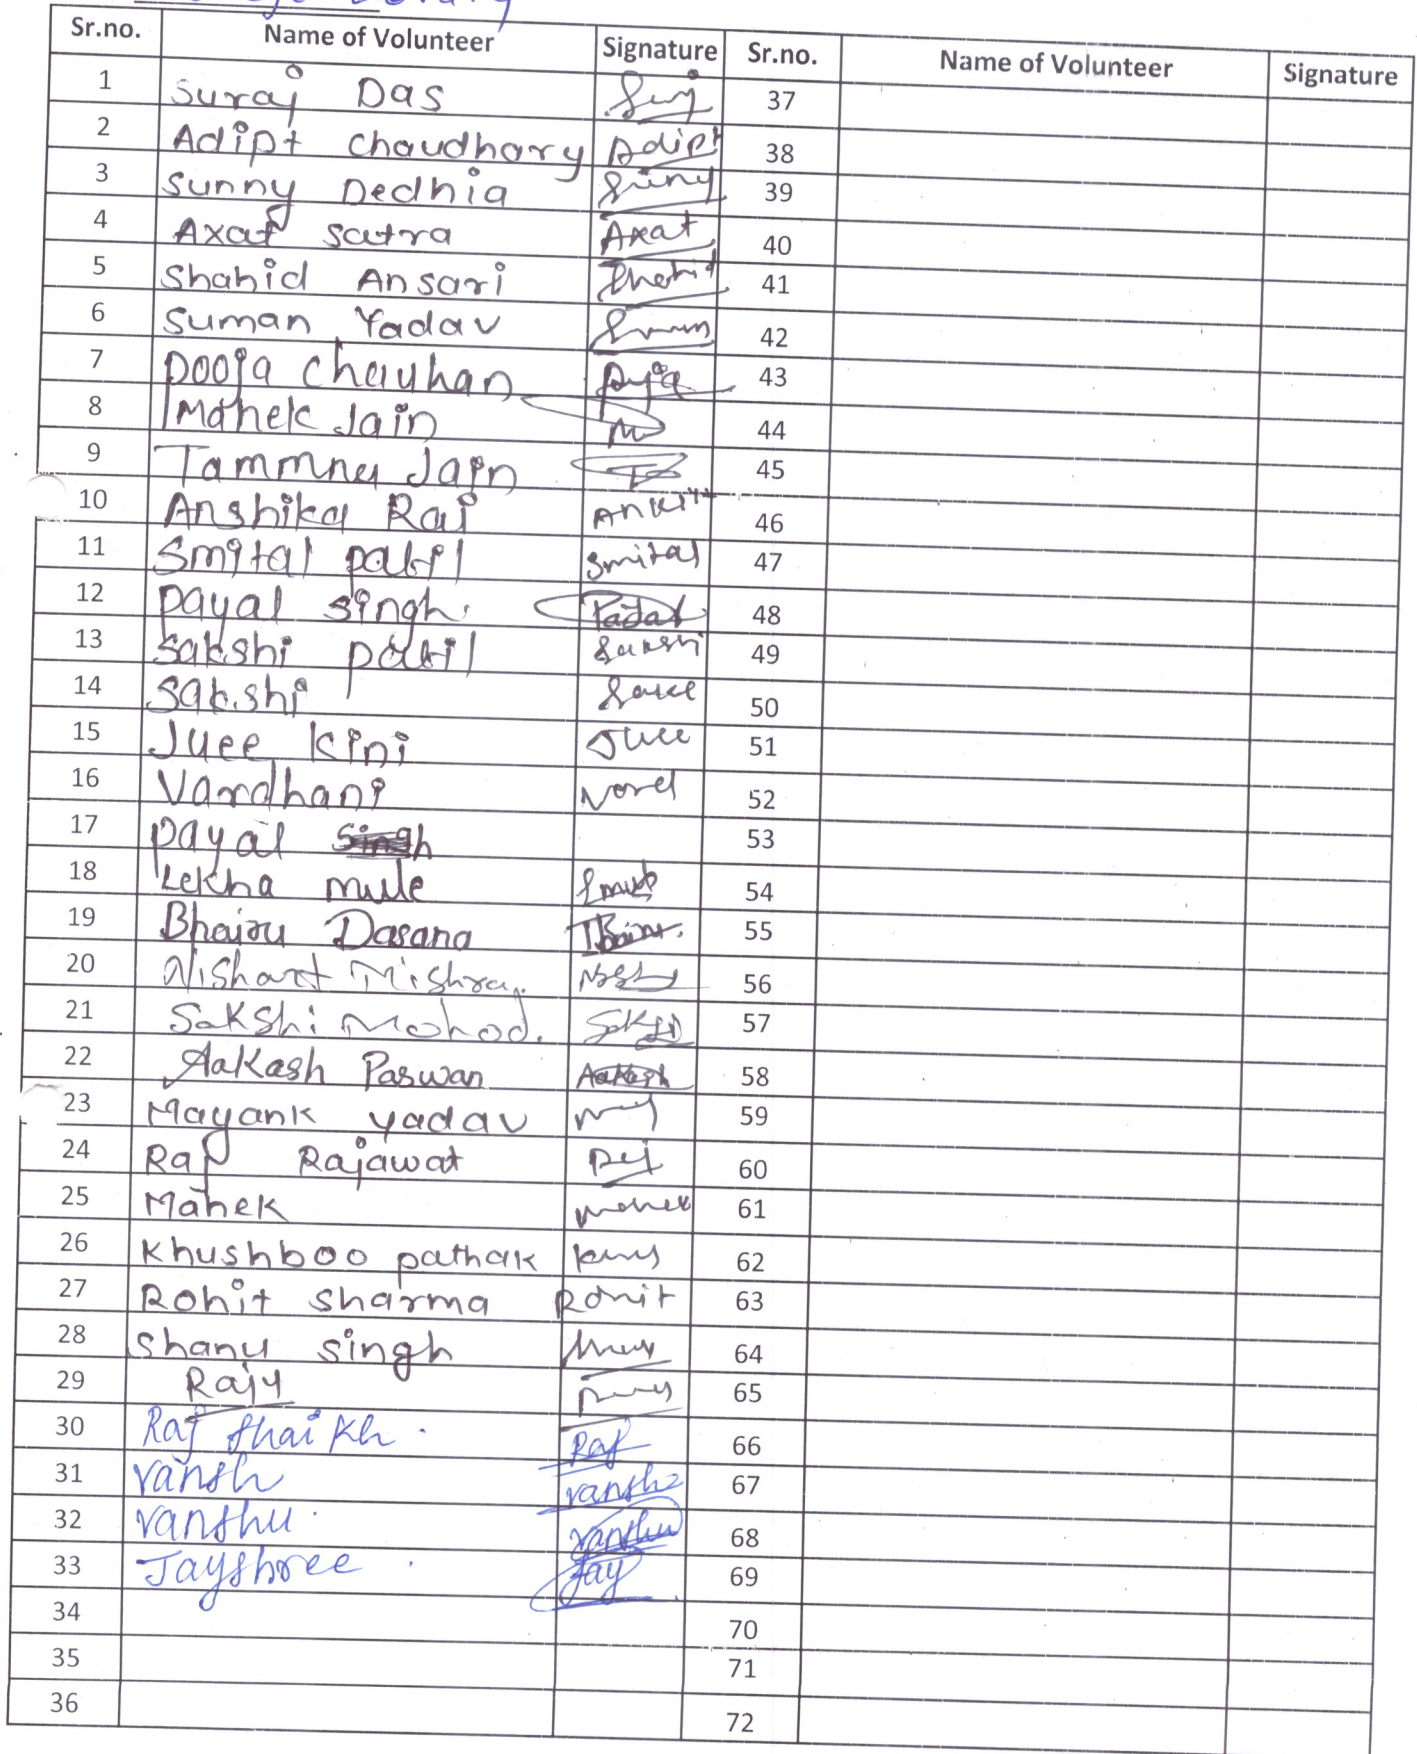 Sr.no. Name of Volunteer Signature Sr.no. Name of Volunteer Signature
1 Suraj Das 37
2 Adipt Chaudhary Adipt 38
3 Sunny Dedhia Suny 39
4 Axat Satra Axat 40
5 Shahid Ansari Shahid 41
6 Suman Yadav 42
7 Pooja Chauhan 43
8 Mahek Jain M 44
9 Tammna Jain 45
10 Anshika Rai 46
11 Smital patil Smital 47
12 Payal Singh. 48
13 Sakshi patil Sakshi 49
14 Sakshi 50
15 Juee Kini Juee 51
16 Vardhani 52
17 Payal Singh 53
18 Lekha Mule 54
19 Bhairu Dasana 55
20 Nishant Mishra. 56
21 Sakshi Mohod. 57
22 Aakash Paswan Aakash 58
23 Mayank Yadav 59
24 Raj Rajawat 60
25 Mahek Mahek 61
26 Khushboo pathak 62
27 Rohit Sharma Rohit 63
28 Shanu Singh 64
29 Raju 65
30 Raj Shaikh. Raj 66
31 Vansh Vansh 67
32 Vanshu. Vanshu 68
33 Jayshree. Jay 69
34 70
35 71
36 72